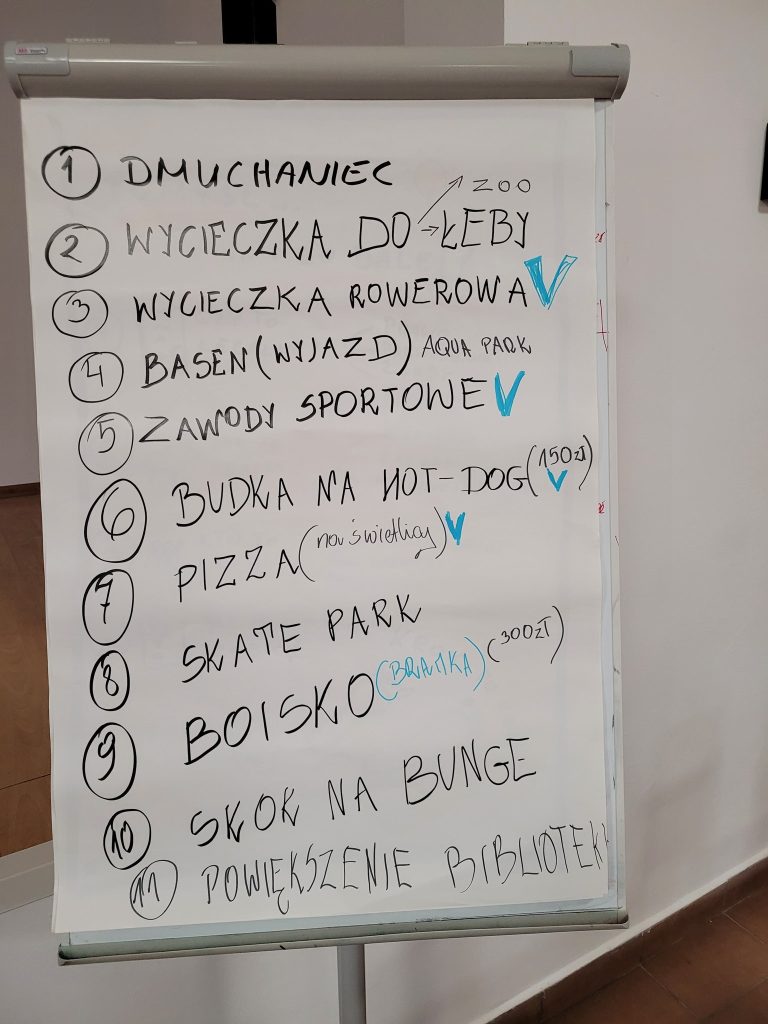 1 DMUCHANIEC
→ ZOO
2 WYCIECZKA DO → ŁEBY
3 WYCIECZKA ROWEROWA V
4 BASEN (WYJAZD) AQUA PARK
5 ZAWODY SPORTOWE V
6 BUDKA NA HOT-DOG (150zł) V
7 PIZZA (na świetlicy) V
8 SKATE PARK
9 BOISKO (BRAMKA) (300zł)
10 SKOK NA BUNGE
11 POWIĘKSZENIE BIBLIOTEKI